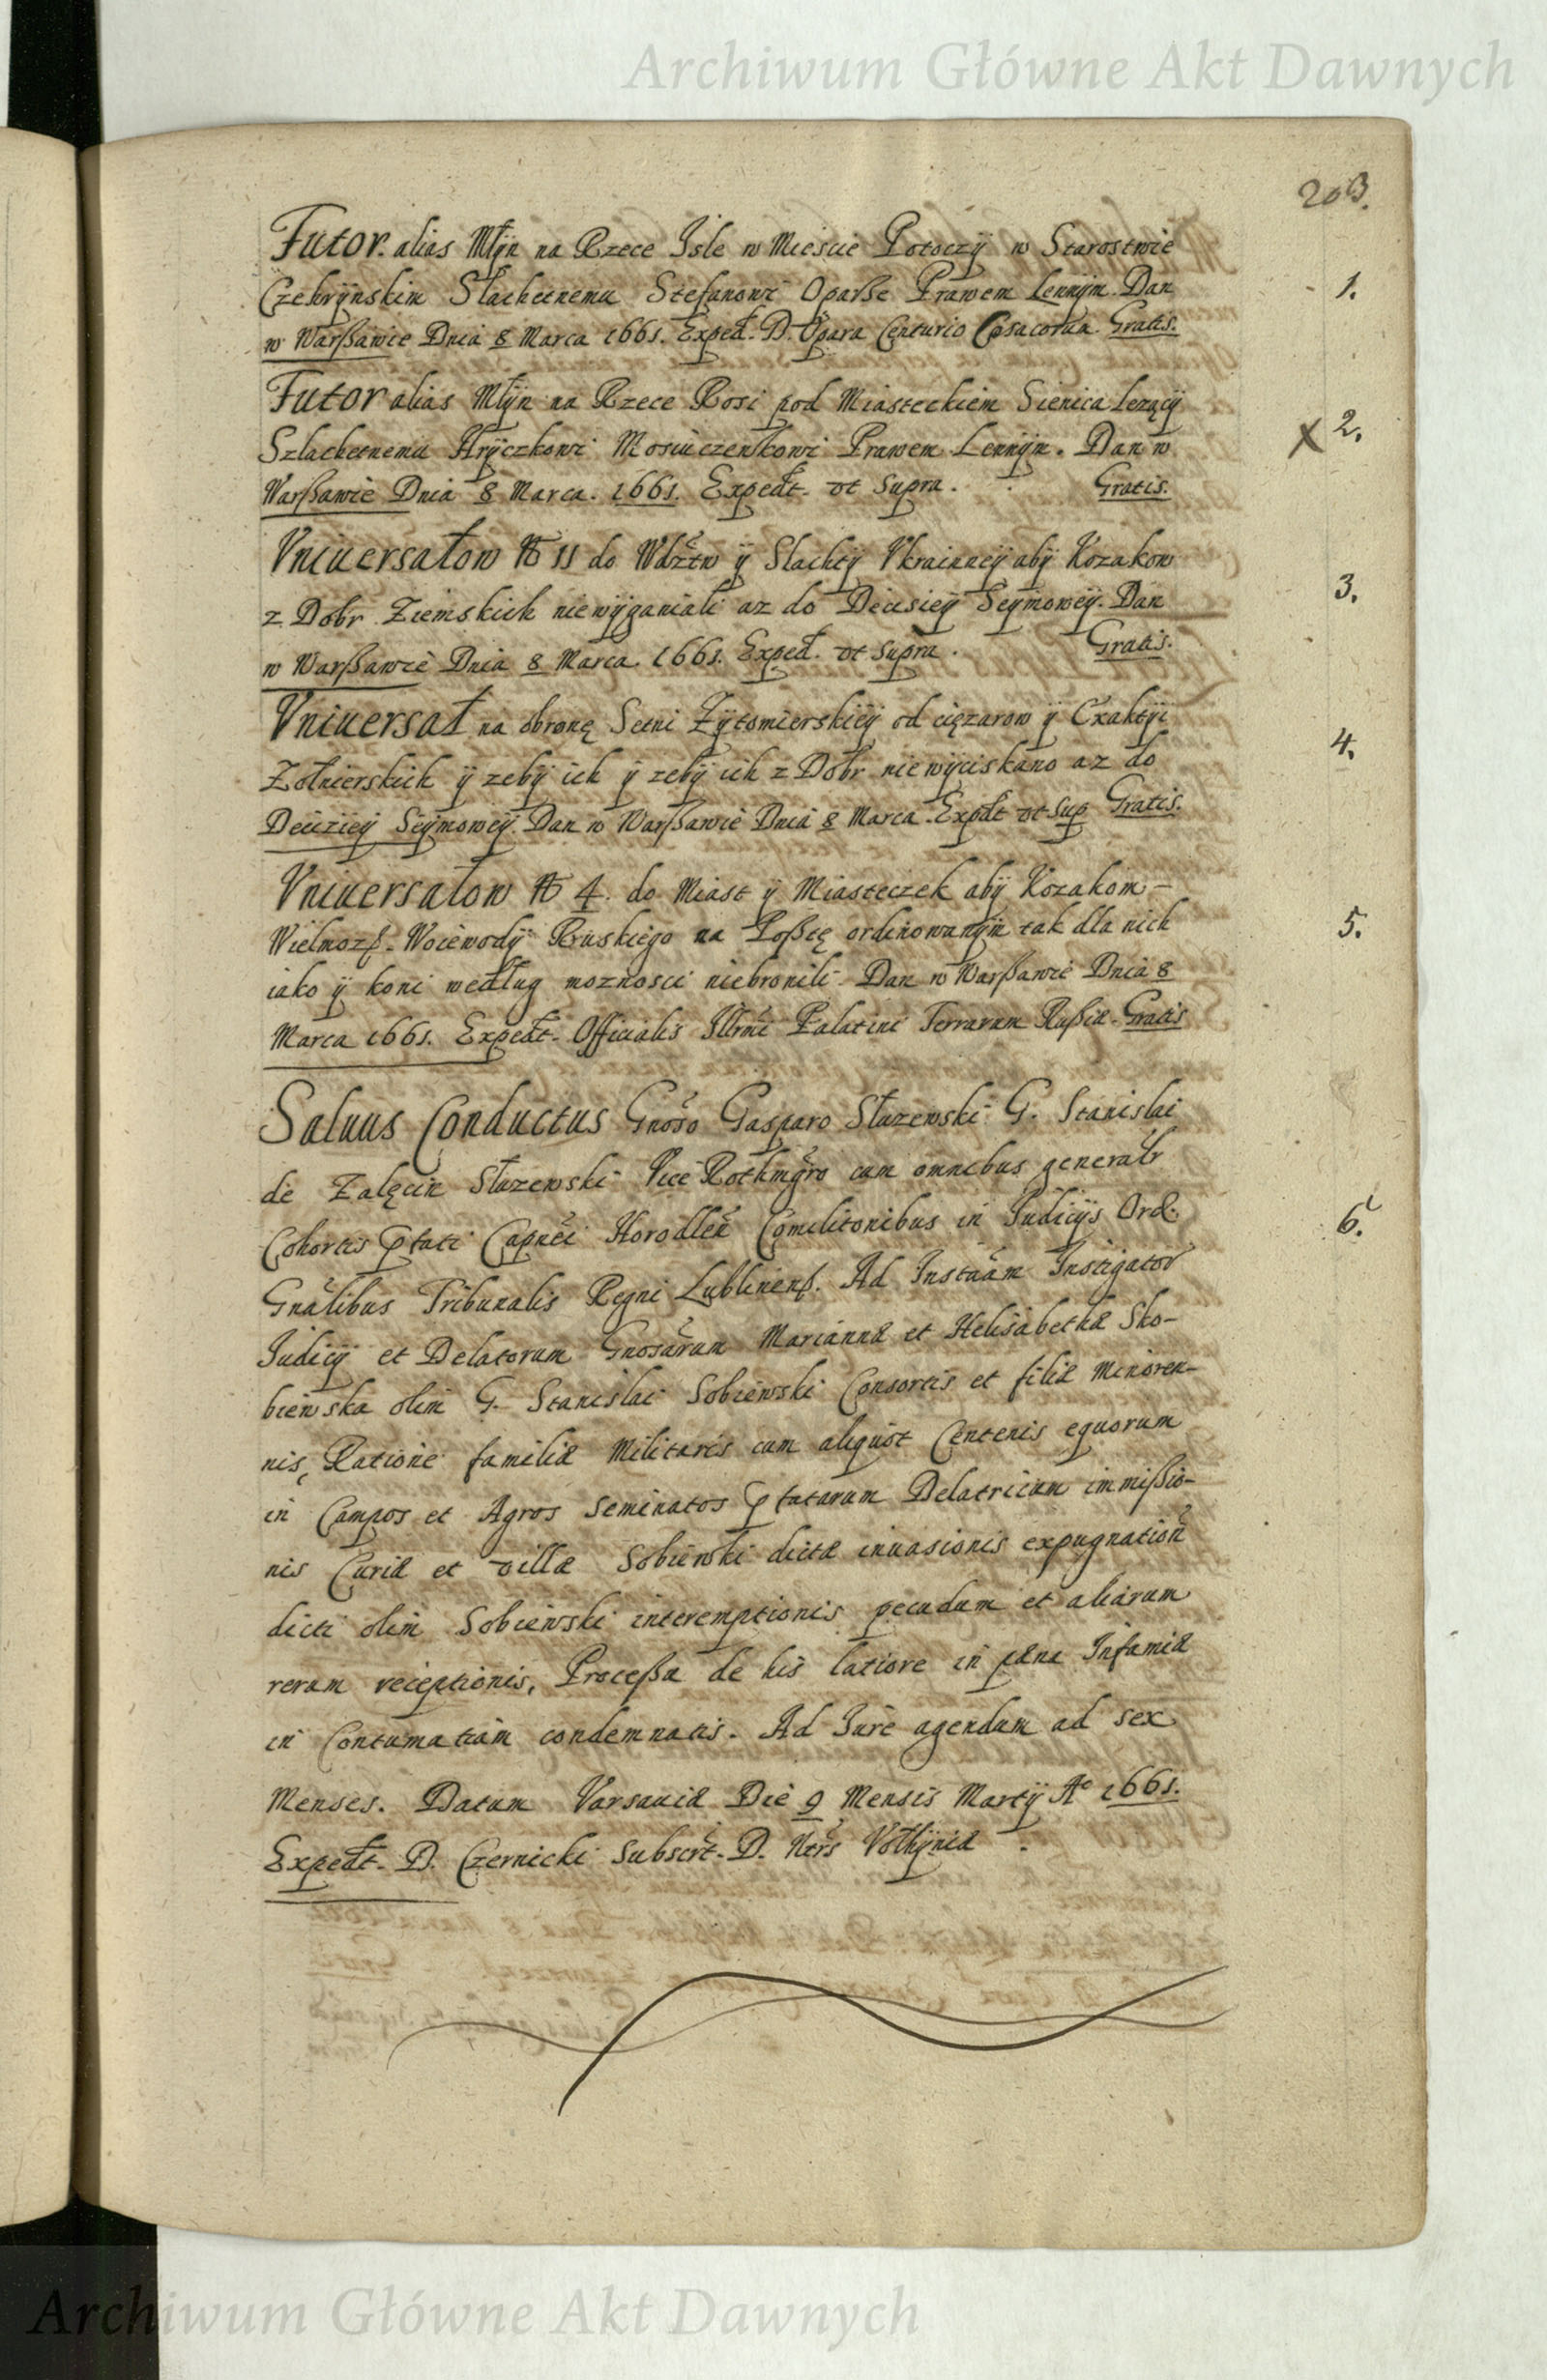 Archiwum Główne Akt Dawnych
203.
Futor. alias Młÿn na Rzece Jsle w Miescie Potoczÿ w Starostwie
Czehrÿnskim Slachetnemu Stefanowi Oparße Prawem Lennÿm. Dan
w Warßawie Dnia 8 Marca 1661. Exped. D. Opara Centurio Cosacorum Gratis.
1.
Futor alias Młÿn na Rzece Rosi pod Miasteckiem Sienica Lezący
Szlachetnemu Hrÿczkowi Mosiuczenkowi Prawem Lennÿm. Dan w
Warßawie Dnia 8 Marca. 1661. Expedt. vt Supra. Gratis.
x 2.
Vniuersałow No 11 do Wdztw ÿ Slachtÿ Vkrainneÿ abÿ Kozakow
z Dobr Ziemskich niewÿganiali az do Decisieÿ Seÿmoweÿ. Dan
w Warßawie Dnia 8 Marca. 1661. Exped. vt Supra. Gratis.
3.
Vniuersał na obronę Setni Zÿtomierskieÿ od cięzarow ÿ Exaktÿi
Zołnierskich ÿ zebÿ ich ÿ zebÿ ich z Dobr niewÿciskano az do
Decizieÿ Seÿmoweÿ. Dan w Warßawie Dnia 8 Marca. Expdt vt Sup Gratis.
4.
Vniuersałow No 4. do Miast ÿ Miasteczek abÿ Kozakom -
Wielmozß. Woiewodÿ Ruskiego na Poßtę ordinowanÿm tak dla nich
iako ÿ koni według moznosci niebronili. Dan w Warßawie Dnia 8
Marca 1661. Expedt. Officialis Jllrmi Palatini Terrarum Rußiæ. Gratis
5.
Saluus Conductus Gnoso Gasparo Słuzewski G. Stanislai
de Zalęcin Słuzewski Vice Rothmgro cum omnibus generalr
Cohortis ptati Capnei Horodlen Comilitonibus in Judicÿs Ord.
Gnalibus Tribunalis Regni Lublinenß. Ad Instaam Instigator
Judicÿ et Delatorum Gnosarum Mariannæ et Helisabethæ Sko-
biewska olim G. Stanislai Sobiewski Consortis et filiæ minoren-
nis, Ratione familiæ Militaris cum aliquot Centenis equorum
in Campos et Agros seminatos ptatarum Delatricum immißio-
nis Curiæ et villæ Sobiewski dictæ inuasionis expugnation
dicti olim Sobiewski interemptionis pecudum et aliarum
rerum receptionis, Proceßu de his latiore in pæna Infamiæ
in Contumatiam condemnatis. Ad Jure agendum ad sex
Menses. Datum Varsauiæ Die 9 Mensis Martÿ Ao 1661.
Expedt. D. Czernicki Subscrt. D. Ntrs Vołhÿniæ.
6.
Archiwum Główne Akt Dawnych